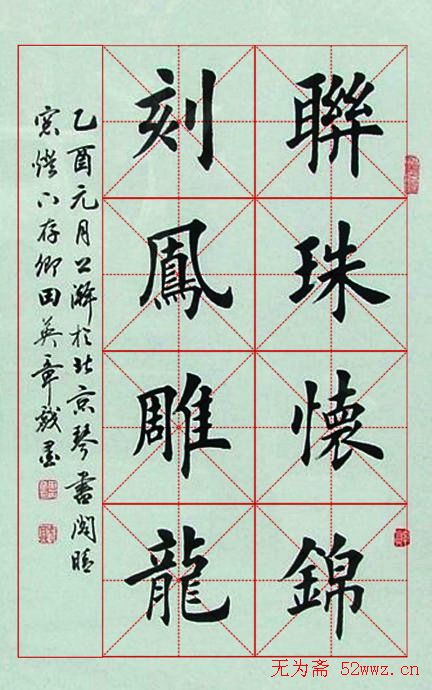 聯珠懷錦
刻鳳雕龍
乙酉元月公澣於北京琴書閣晴
窓燈下存卿田英章戲墨
无为斋 52wwz.cn